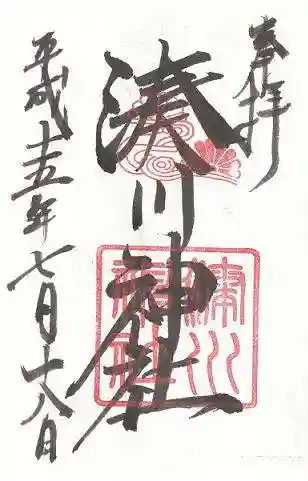 奉拝
湊川神社
湊川神社
平成十五年七月十八日